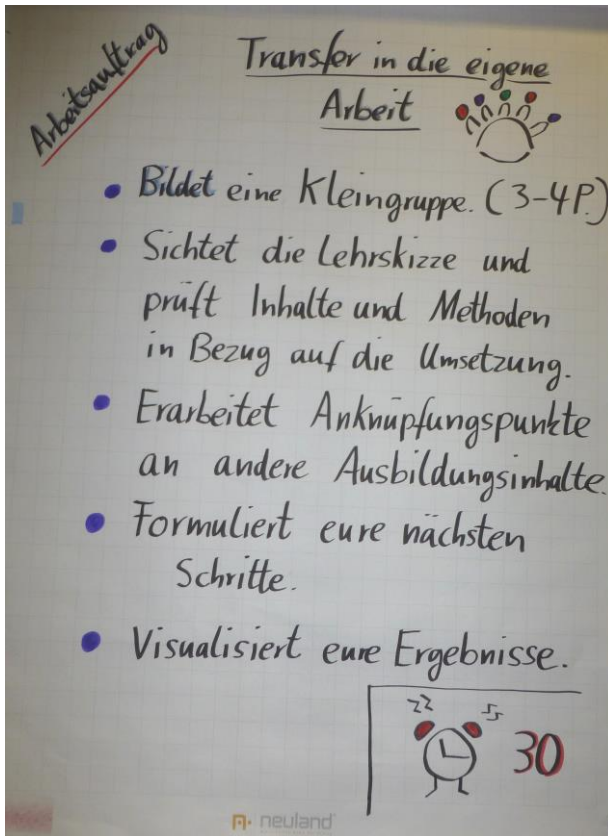 Arbeitsauftrag
Transfer in die eigene
Arbeit
Bildet eine Kleingruppe. (3-4P.)
Sichtet die Lehrskizze und
prüft Inhalte und Methoden
in Bezug auf die Umsetzung.
Erarbeitet Anknüpfungspunkte
an andere Ausbildungsinhalte.
Formuliert eure nächsten
Schritte.
Visualisiert eure Ergebnisse.
30
neuland